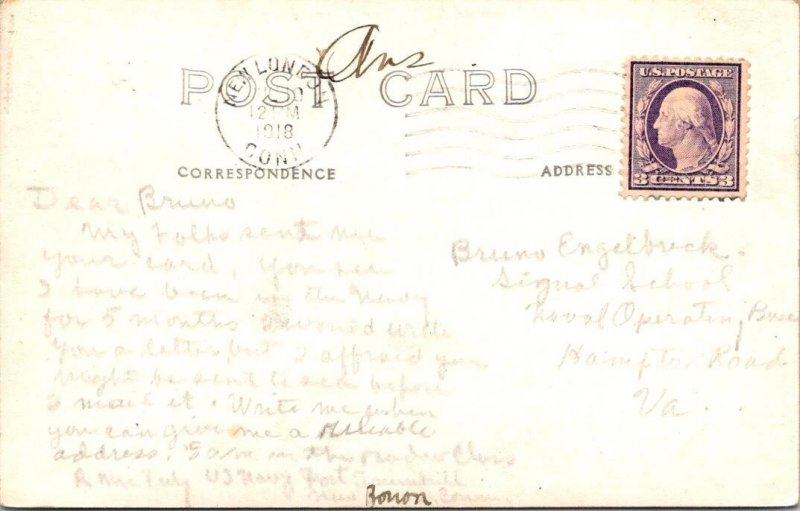 Ans
POST CARD
NEW LONDON
12 M
1918
CONN
U.S. POSTAGE
3 CENTS 3
CORRESPONDENCE
ADDRESS
Dear Bruno
My folks sent me
your card, you see
I have been in the Navy
for 5 months I would write
you a letter, but I affraid you
might be sent to sea before
I mail it. Write me when
you can give me a reliable
address. I am in the radio Class
R U.S. Navy Port Trumbill
New Conn.
Bruno Engelbreck.
Signal School
Naval Operating Base
Hampton Road
Va.